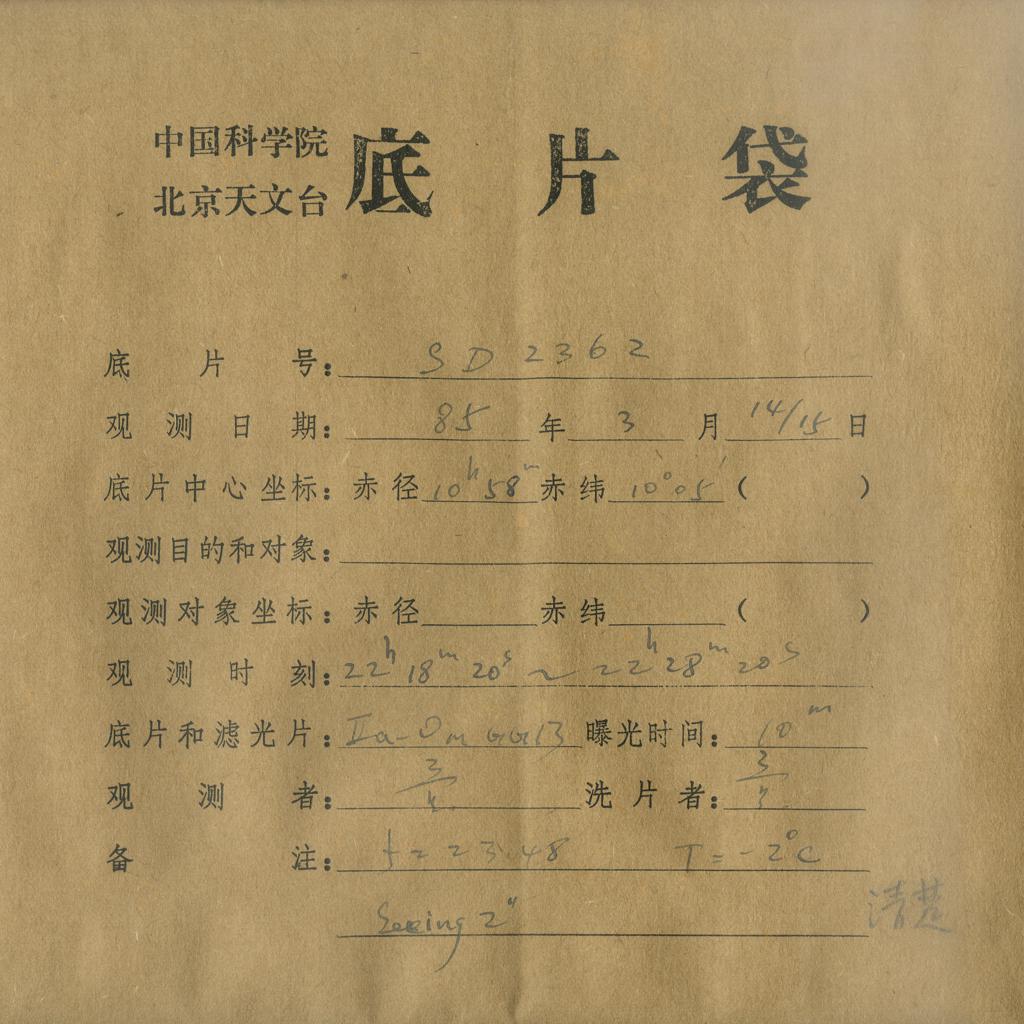 中国科学院
北京天文台
底片袋
底片号：SD2362
观测日期：85年3月14/15日
底片中心坐标：赤径10h58m赤纬10°05′（ ）
观测目的和对象：
观测对象坐标：赤径 赤纬 （ ）
观测时刻：22h18m20s~22h28m20s
底片和滤光片：IIa-O GG13 曝光时间：10m
观测者： 洗片者：
备注：f=23.48 T=-2°C
Seeing 2"
清楚